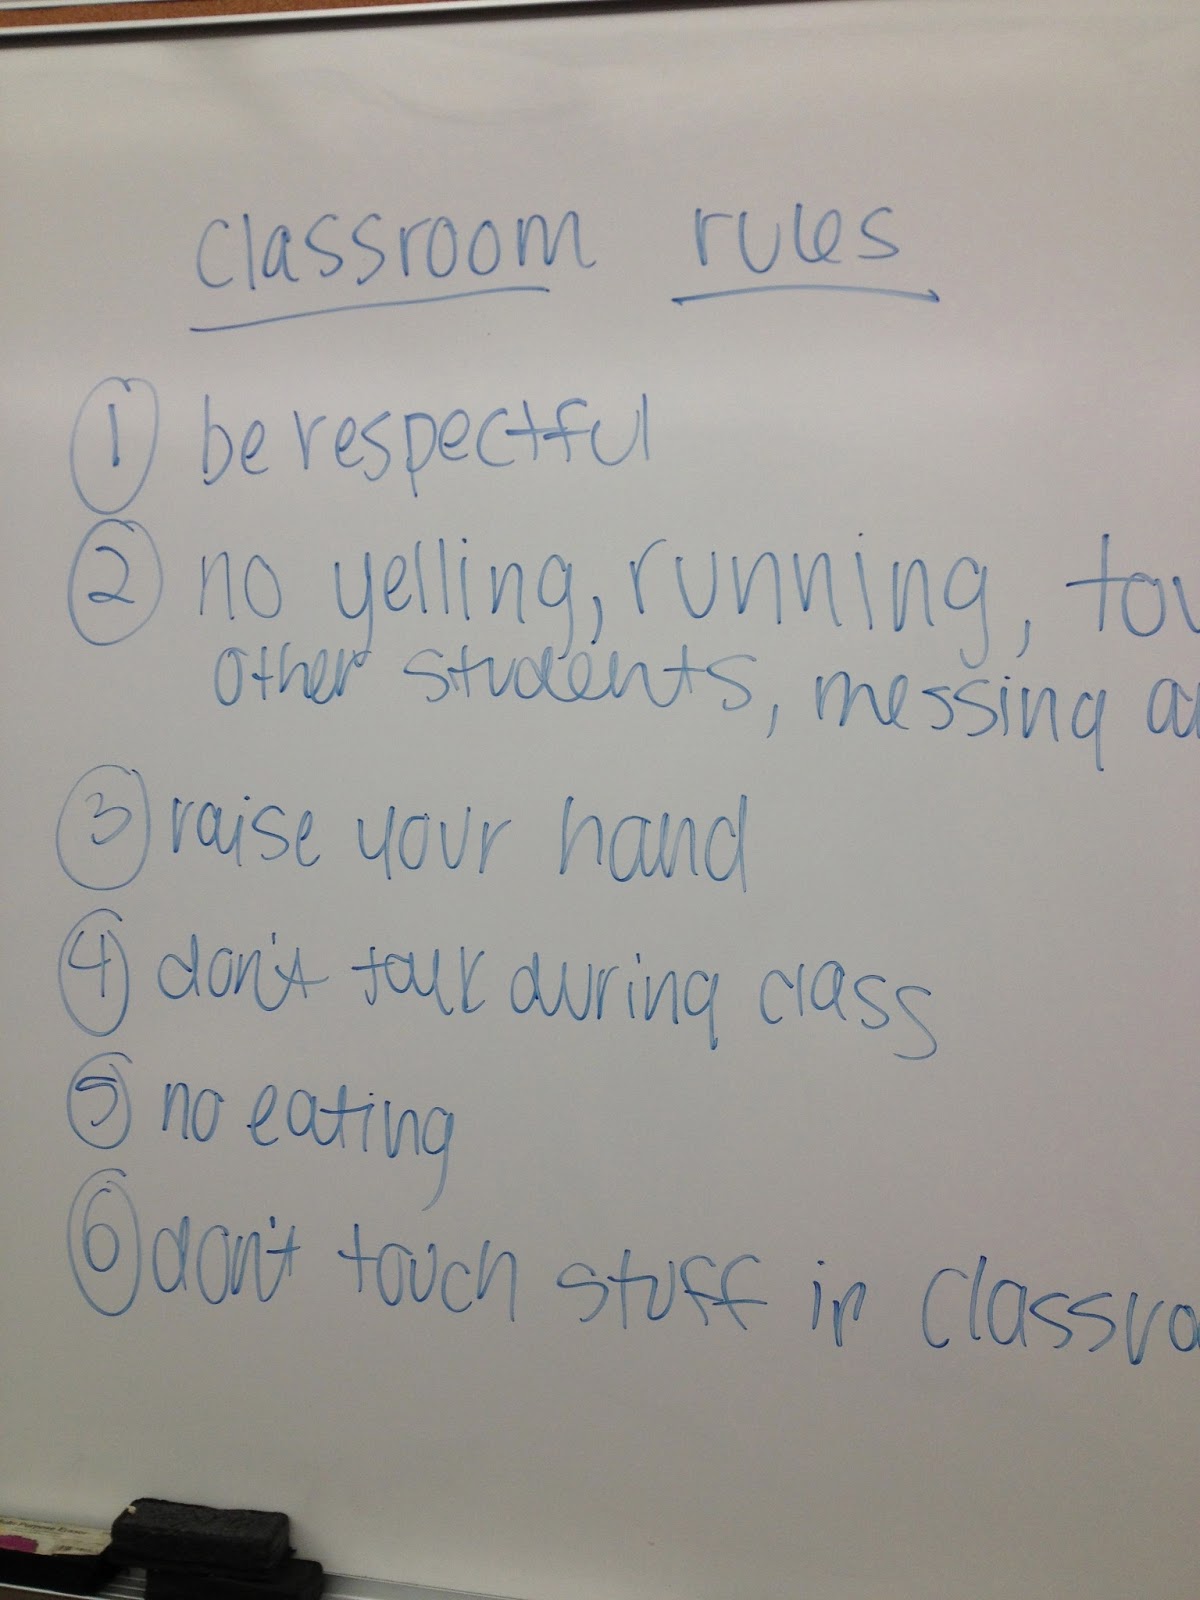 classroom rules
① be respectful
② no yelling, running, tou
other students, messing a
③ raise your hand
④ don't talk during class
⑤ no eating
⑥ don't touch stuff in classro